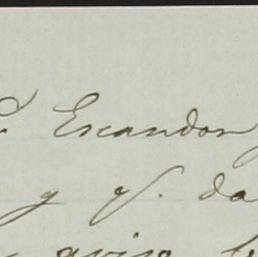 Escandon
y qe. da
aviso